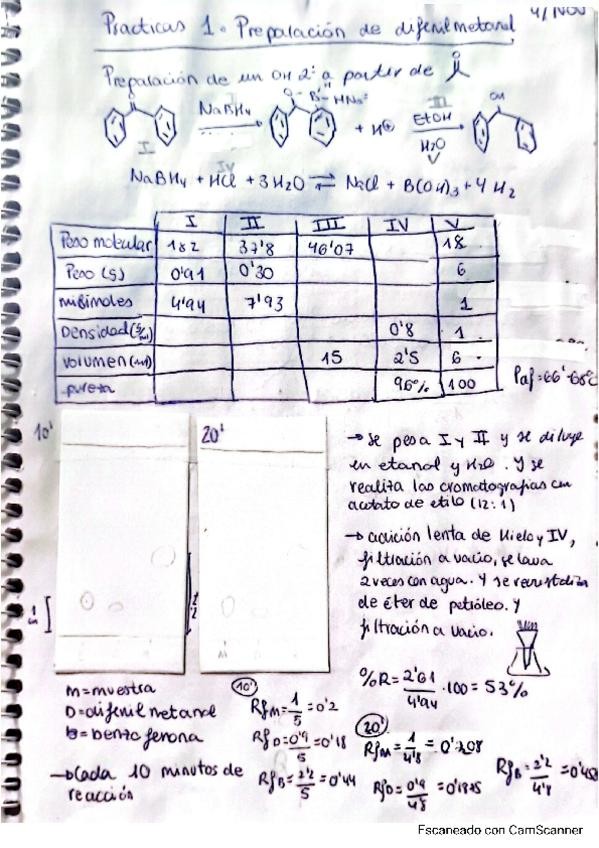 4/Nov
Practicas 1. Preparación de difenilmetanol
Preparación de un OH 2º a partir de
NaBH4
+ H⊕
III
EtOH
H2O
V
OH
I
IV
NaBH4 + HCl + 3H2O ⇌ NaCl + B(OH)3 + 4H2
I II III IV V
Peso molecular 182 37'8 46'07 18
Peso (g) 0'91 0'30 6
milimoles 4'94 7'93 1
Densidad (g/ml) 0'8 1
volumen (ml) 15 2'5 6
pureza 96% 100
Paf=66'-68ºC
10'
20'
→ Se pesa I y II y se diluye
en etanol y H2O. Y se
realiza las cromatografías con
acetato de etilo (12:1)
→ adición lenta de Hielo y IV,
filtración a vacio, se lava
2 veces con agua. Y se recristaliza
de éter de petróleo. Y
filtración a vacio.
1 cm
2'2
M
%R = 2'61/4'94 · 100 = 53%
M=muestra
D=difenilmetanol
B=benzofenona
→ Cada 10 minutos de
reacción
10'
RfM = 1/5 = 0'2
RfD = 0'9/5 = 0'18
RfB = 2'2/5 = 0'44
20'
RfM = 1/4'8 = 0'208
RfD = 0'9/4'8 = 0'1875
RfB = 2'2/4'8 = 0'458
Escaneado con CamScanner